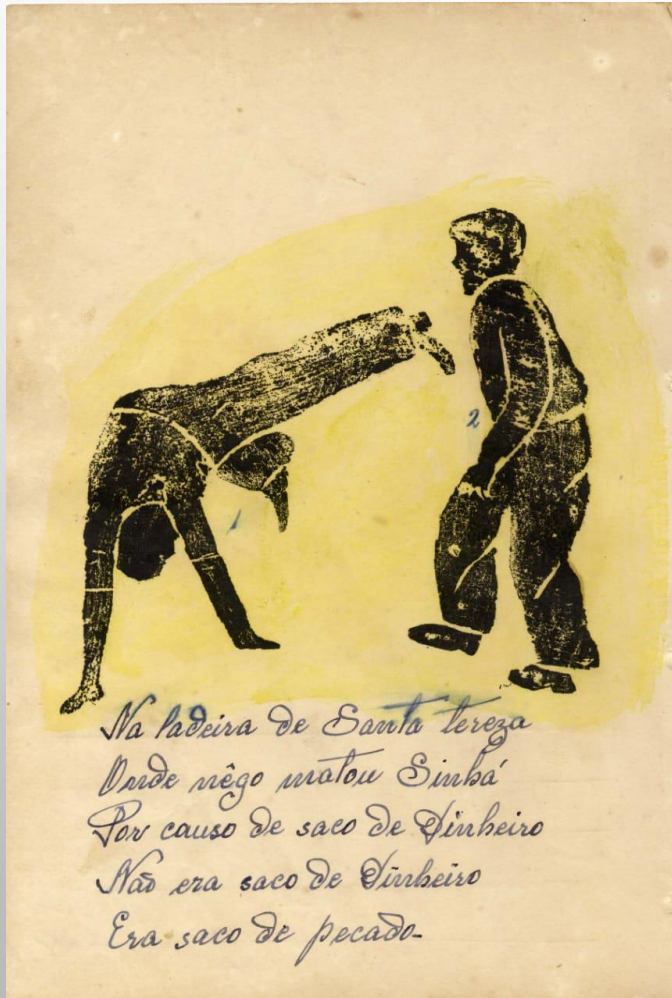 2
1
Na ladeira de Santa tereza
Onde nêgo matou Sinhá
Por causo de saco de Dinheiro
Não era saco de Dinheiro
Era saco de pecado-